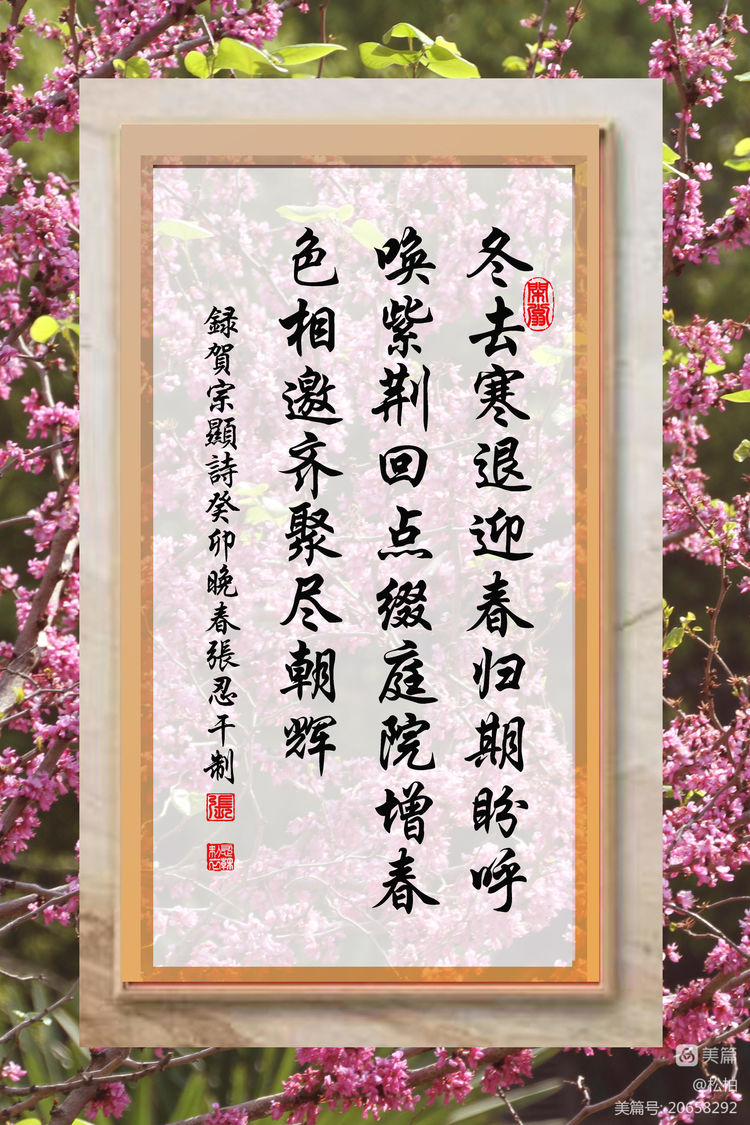 冬去寒退迎春归期盼呼
唤紫荆回点缀庭院增春
色相邀齐聚尽朝辉
録賀宗顯詩癸卯晚春張忍干制
張
美篇
@松柏
美篇号: 20658292